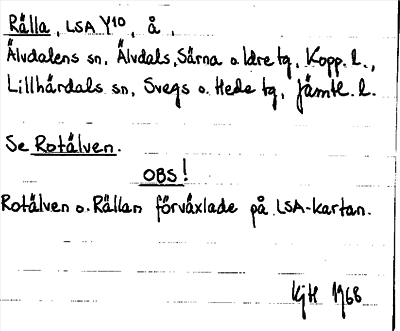 Rälla, LSA Y10, å
Älvdalens sn, Älvdals, Särna o. Idre tg, Kopp. l.,
Lillhärdals sn, Svegs o. Hede tg, Jämtl. l.
Se Rotälven.
OBS!
Rotälven o. Rällan förväxlade på LSA-kartan.
KjH 1968